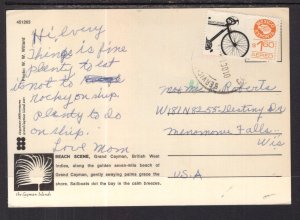 451265
Photo: W. W. Willard
Hi, every
Things is fine
plenty to eat
is not to
rocky on ship
plenty to do
on ship.
Love Mom
$1.60
Roberts
W181N8258-Destiny Dr
Menomonee Falls
Wis
U.S.A
BEACH SCENE, Grand Cayman, British West
Indies, along the golden seven-mile beach of
Grand Cayman, gently swaying palms grace the
shore. Sailboats dot the bay in the calm breezes.
The Cayman Islands